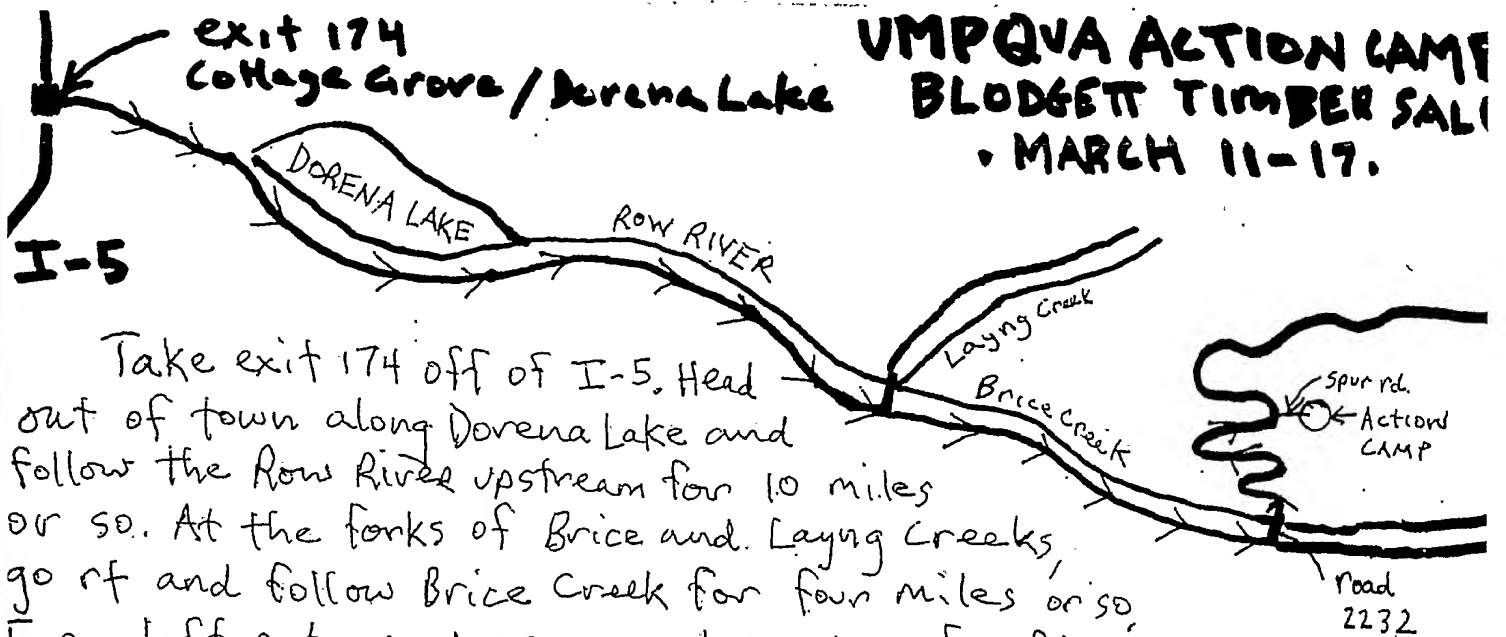 exit 174
Cottage Grove / Dorena Lake
UMPQUA ACTION CAMP
BLODGETT TIMBER SAL
. MARCH 11-17.
I-5
DORENA LAKE
ROW RIVER
Layng Creek
Brice Creek
spur rd.
Action
CAMP
road
2232
Take exit 174 off of I-5. Head
out of town along Dorena Lake and
follow the Row River upstream for 10 miles
or so. At the forks of Brice and Layng Creeks,
go rt and follow Brice Creek for four miles or so.